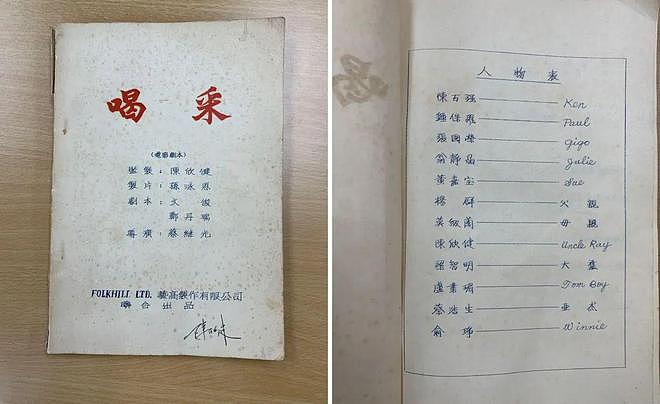 喝采
(電影劇本)
監製：陳欣健
製片：孫泳恩
劇本：文俊
鄭丹瑞
導演：蔡繼光
FOLKHILL LTD. 藝高製作有限公司
聯合出品
人物表
陳百强 Ken
鍾保羅 Paul
張國榮 Gigo
翁靜晶 Julie
黃嘉宝 Sae
楊群 父親
英敏蘭 母親
陳欣健 Uncle Ray
梁智明 大
盧業瑂 Tom Boy
蔡浩生 亚
俞琤 Winnie